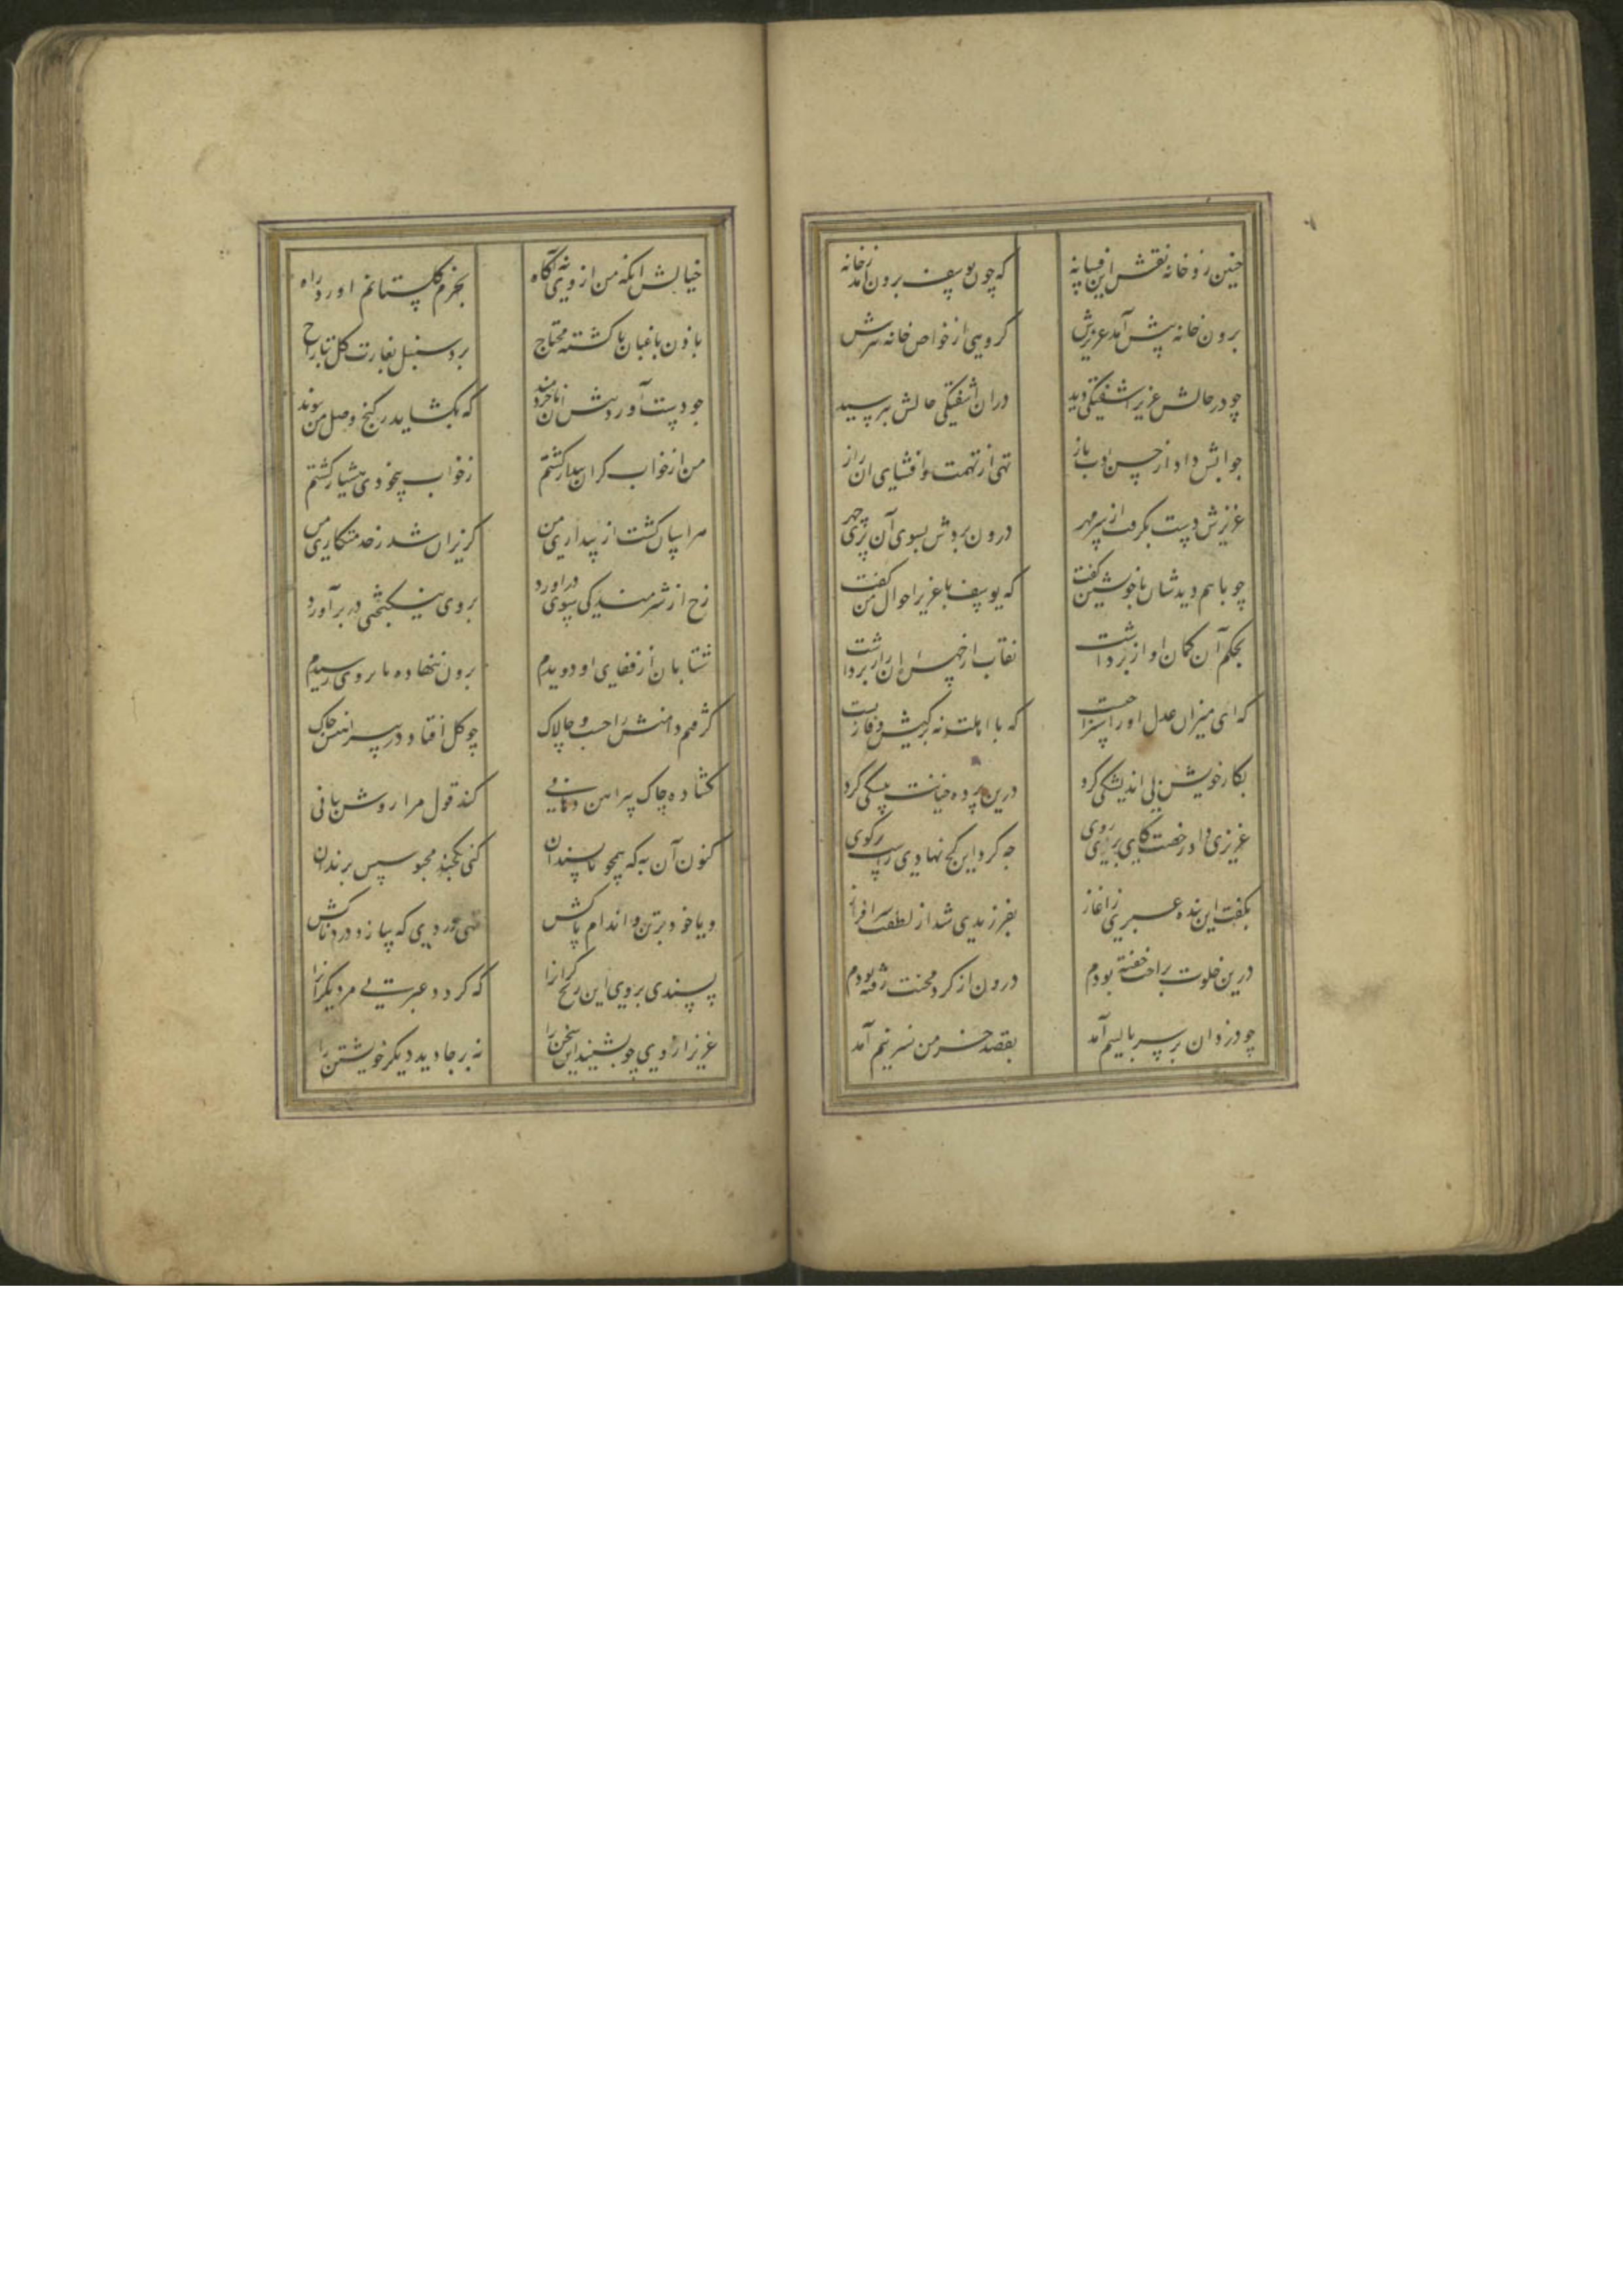 چنین زد خامه نقش این فسانه
که چون یوسف برون آمد زخانه
برون خانه پیش آمد عزیزش
کروهی از خواص خانه نیزش
چو در حالش عزیز آشفتکی دید
دران آشفتکی حالش بپرسید
جوابش داد از حسن ادب باز
تهی از تهمت و افشای آن راز
عزیزش دست بکرفت از سر مهر
درون بردش بسوی آن پری چهر
چو با هم دیدشان با خویشتن کفت
که یوسف با عزیز احوال من کفت
بحکم آن کمان آواز برداشت
نقاب از چهره آن راز برداشت
که ای میزان عدل او را سزا چیست
که با اهلت نه بر کیش وفا زیست
بکار خویش بی اندیشکی کرد
درین پرده خیانت پیشکی کرد
عزیزی داد رخصت کای پری روی
چه کرد این کج نهادی راست برکوی
بکفت این بنده عبری ز آغاز
بفرزندی شد از لطفت سرافراز
درین خلوت براحت خفته بودم
درون از کرد محنت رفته بودم
چو دزدان بر سر بالینم آمد
بقصد خرمن نسرینم آمد
خیالش آنکه من از وی نه آکاه
بخرم کلستانم آورد راه
باذن باغبان ناکشته محتاج
برد سنبل بغارت کل بتاراج
چو دست آورد پیش آن ناخردمند
که بکشاید ز کنج وصل من بوند
من از خواب کران بیدار کشتم
ز خواب بیخودی هشیار کشتم
هراسان کشت از بیداری من
کریزان شد ز خدمتکاری من
رخ از شرمندکی سوی در آورد
بروی نیکبختی در بر آورد
شتابان از قفای او دویدم
برون ننهاده پا بر وی رسیدم
کرفتم دامنش را چست و چالاک
چو کل افتاد در پیراهنش چاک
کشاده چاک پیراهن دهانی
کند قول مرا روشن بیانی
کنون آن به که همچو ناپسندان
کنی یکچند محبوسش بزندان
و یا خود بر تن و اندام پاکش
نهی دردی که سازد دردناکش
پسندی بر وی این رنج کران را
که کردد عبرتی مر دیکران را
عزیز از وی چو بشنید این سخن را
نه بر جا دید دیکر خویشتن را